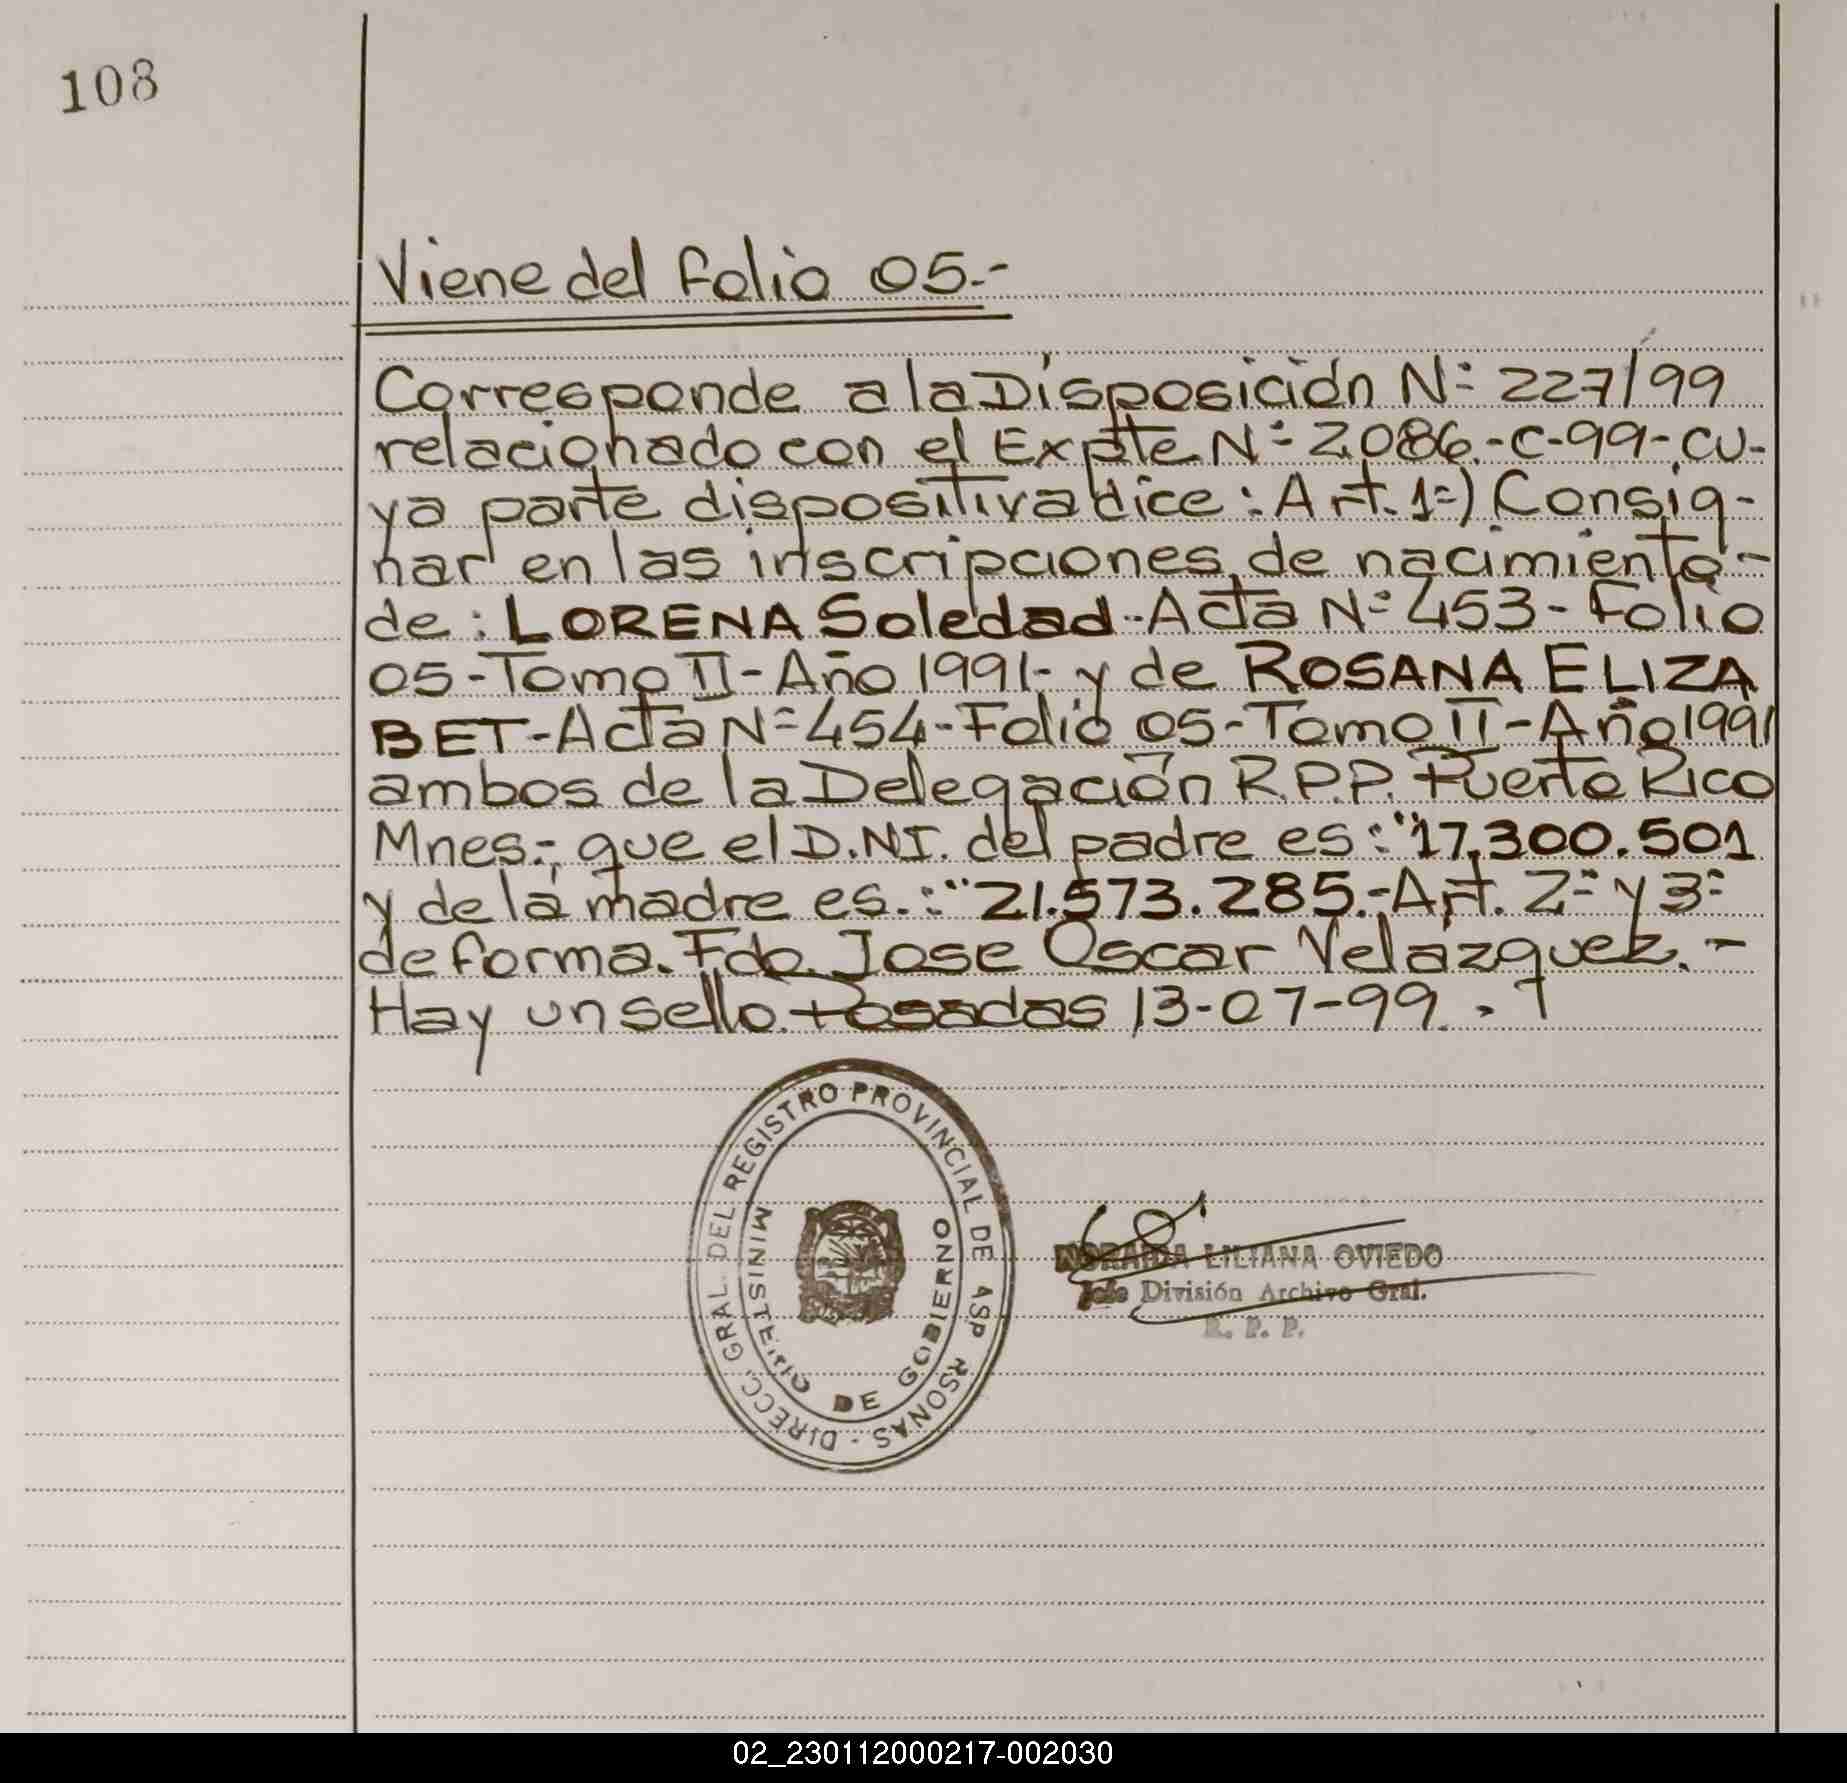 108
Viene del folio 05.-
Corresponde a la Disposición N= 227/99
relacionado con el Expte N= 2086.-C-99-, cu-
ya parte dispositiva dice: Art. 1=) Consig-
nar en las inscripciones de nacimiento-
de: LORENA Soledad.-Acta N= 453- Folio
05-Tomo II-Año 1991- y de ROSANA ELIZA
BET-Acta N=454-Folio 05-Tomo II-Año 1991
ambos de la Delegación R.P.P. Puerto Rico
Mnes.-, que el D.NI. del padre es: "17.300.501
y de la madre es.: "21.573.285.-Art. 2= y 3=
de forma. Fdo. Jose Oscar Velázquez.-
Hay un sello. Posadas 13-07-99.
DIRECC. GRAL. DEL REGISTRO PROVINCIAL DE RSONAS -
MINISTERIO DE GOBIERNO
LILIANA OVIEDO
Jefe División Archivo Gral.
R. P. P.
02_230112000217-002030